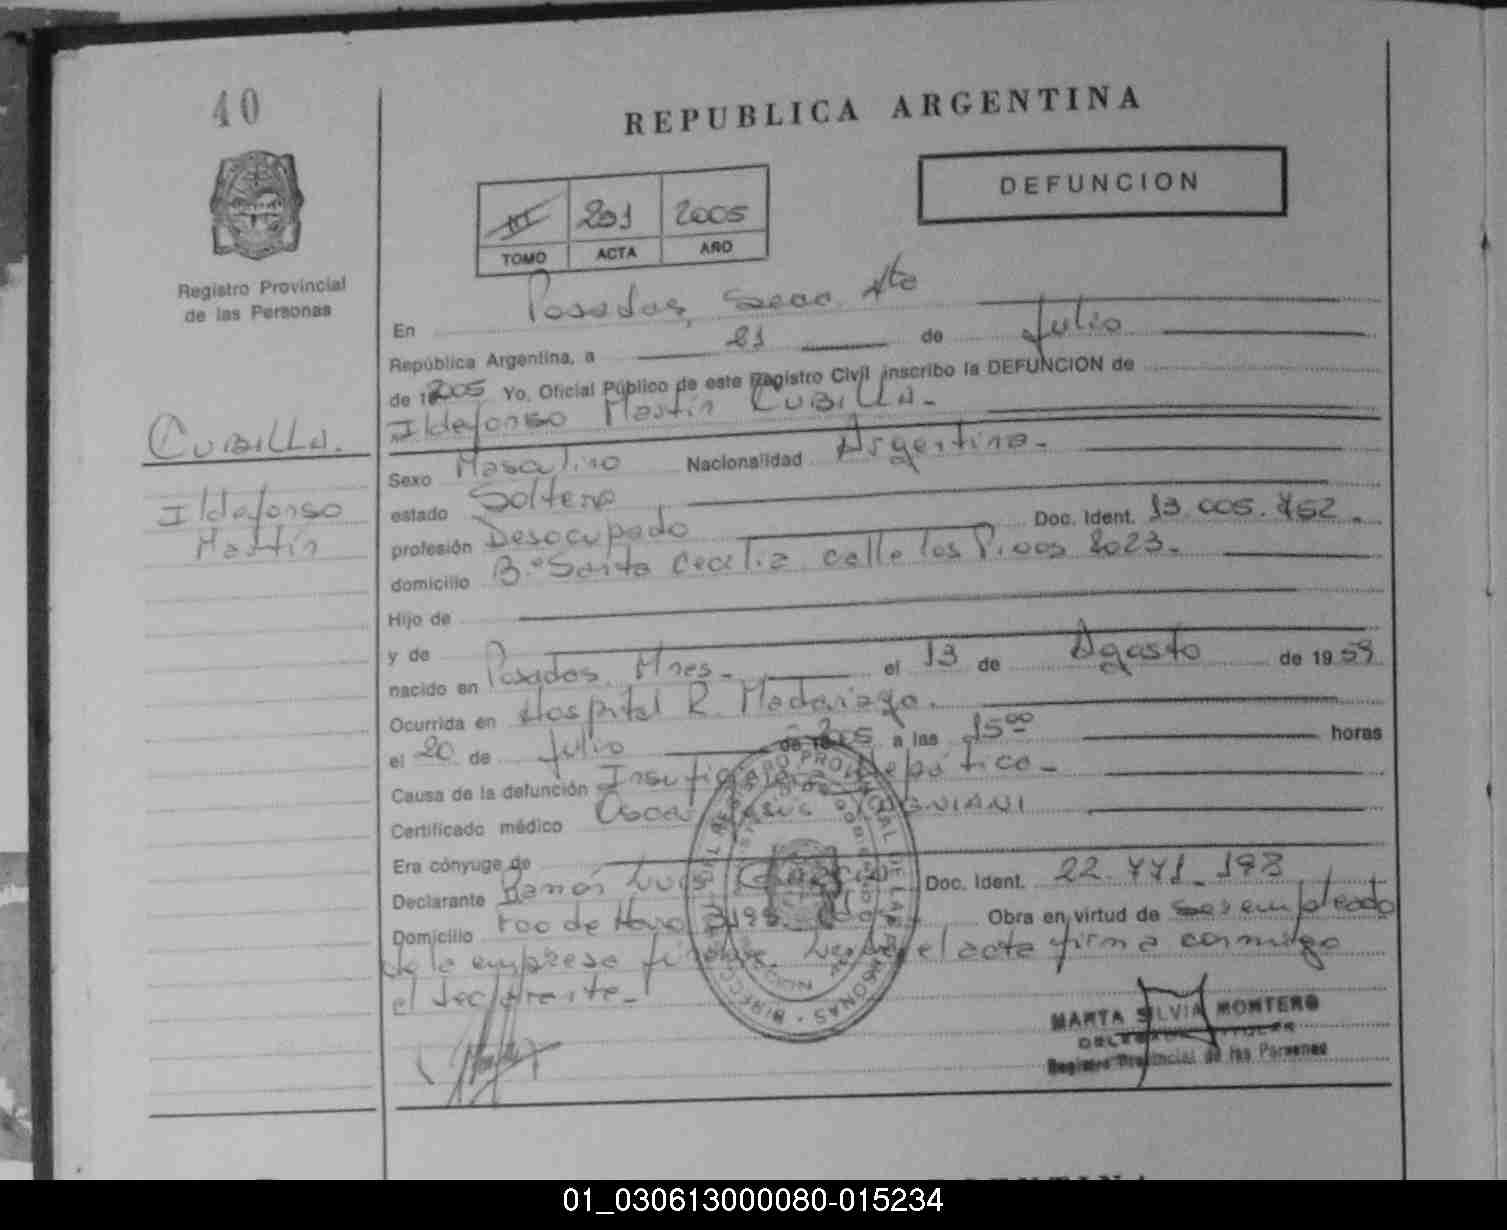 40
REPUBLICA ARGENTINA
DEFUNCION
III 201 2005
TOMO ACTA AÑO
Registro Provincial
de las Personas
En Posadas, Secc. 4ta
República Argentina, a 21 de Julio
de 2005 Yo, Oficial Público de este Registro Civil inscribo la DEFUNCION de
Ildefonso Martín CUBILLA.-
CUBILLA.
Ildefonso
Martín
Sexo Masculino Nacionalidad Argentina.-
estado Soltero
profesión Desocupado Doc. Ident. 13.005.752.
domicilio B° Santa Cecilia calle los Pinos 2023.-
Hijo de
y de
nacido en Posadas. Mnes.- el 13 de Agosto de 1959
Ocurrida en Hospital R. Madariaga.
el 20 de Julio de 2005 a las 15 00 horas
Causa de la defunción Insuficiencia Hepática.-
Certificado médico Oscar Jesús
Era cónyuge de
Declarante Ramón Luis Doc. Ident. 22.771.198
Domicilio Obra en virtud de ser empleado
de la empresa fúnebre. Leída el acta firma conmigo
el declarante.-
MARTA SILVIA MONTERO
DELEGADA TITULAR
Registro Provincial de las Personas
01_030613000080-015234